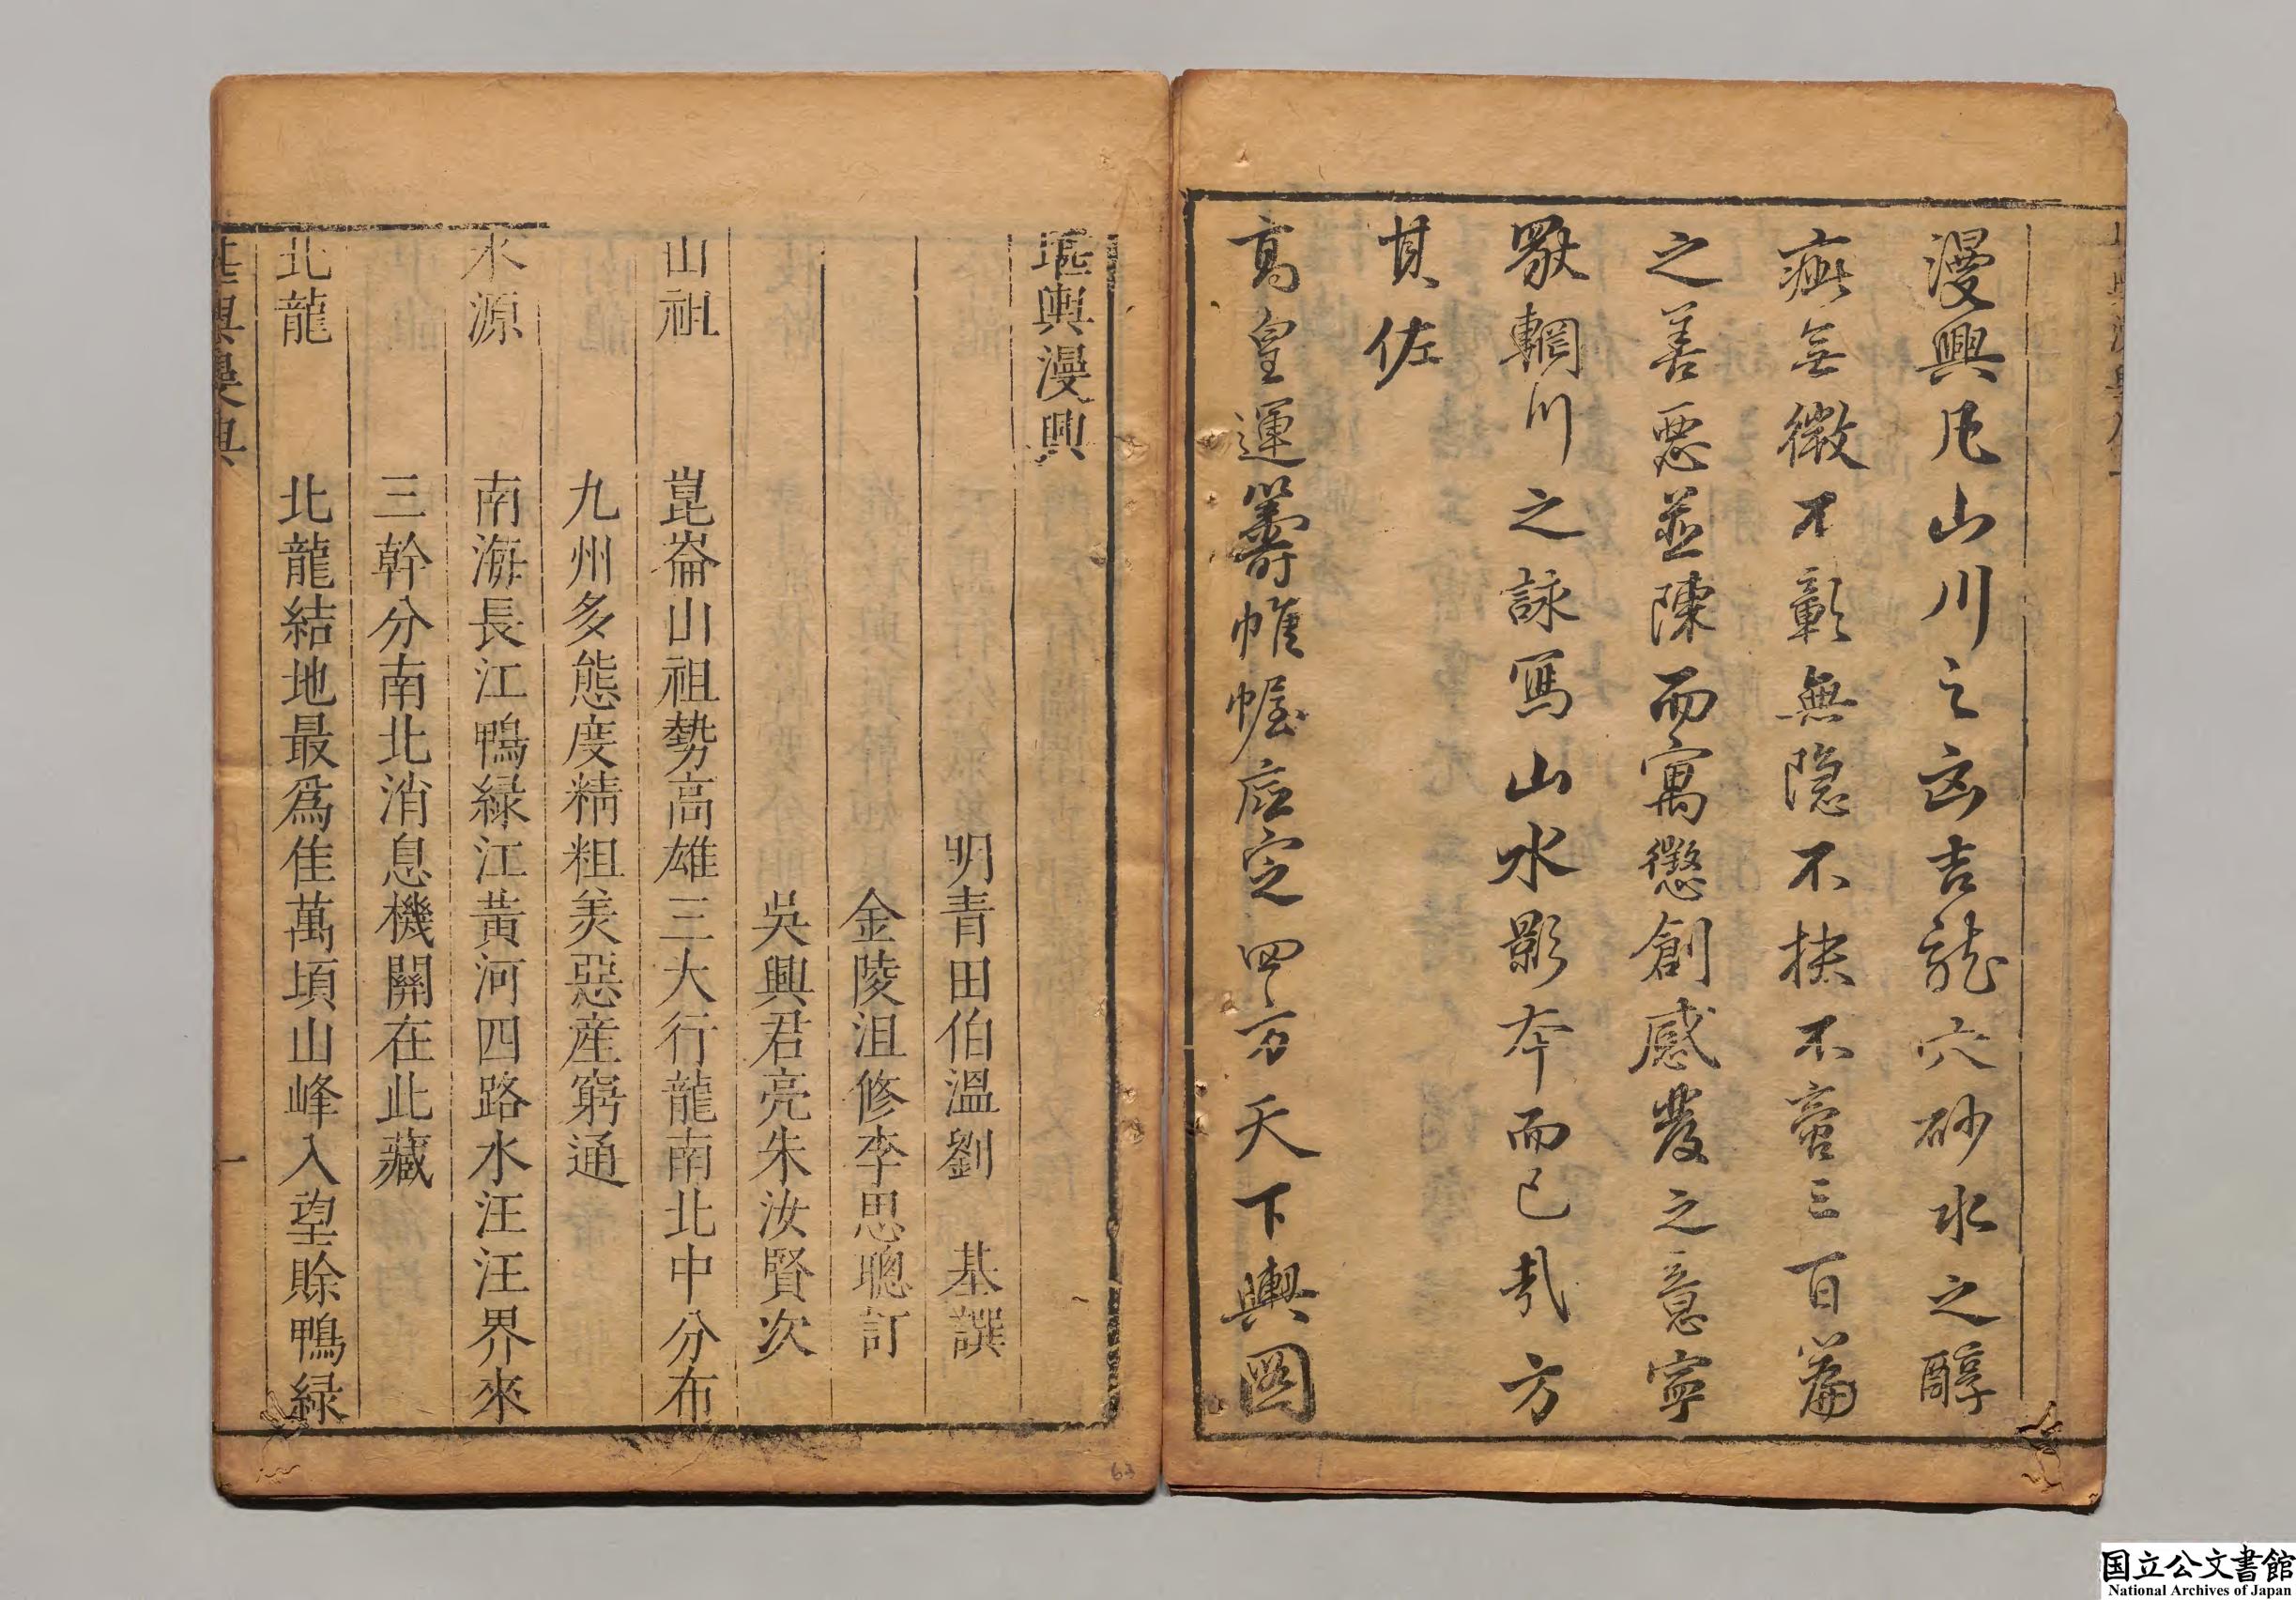 漫興凡山川之凶吉龍穴砂水之醇
疵無微不彰無隱不抉不啻三百篇
之善惡並陳而寓懲創感發之意寧
歌輞川之詠寫山水影本而已哉方
其佐
高皇運籌帷幄底定四方天下輿圖
堪輿漫興
明青田伯溫劉 基譔
金陵沮修李思聰訂
吳興君亮朱汝賢次
山祖 崑崙山祖勢高雄三大行龍南北中分布
九州多態度精粗美惡産窮通
水源 南海長江鴨緑江黃河四路水汪汪界來
三幹分南北消息機關在此藏
北龍 北龍結地最爲佳萬頃山峰入望賒鴨緑
堪輿漫興
一
63
国立公文書館
National Archives of Japan